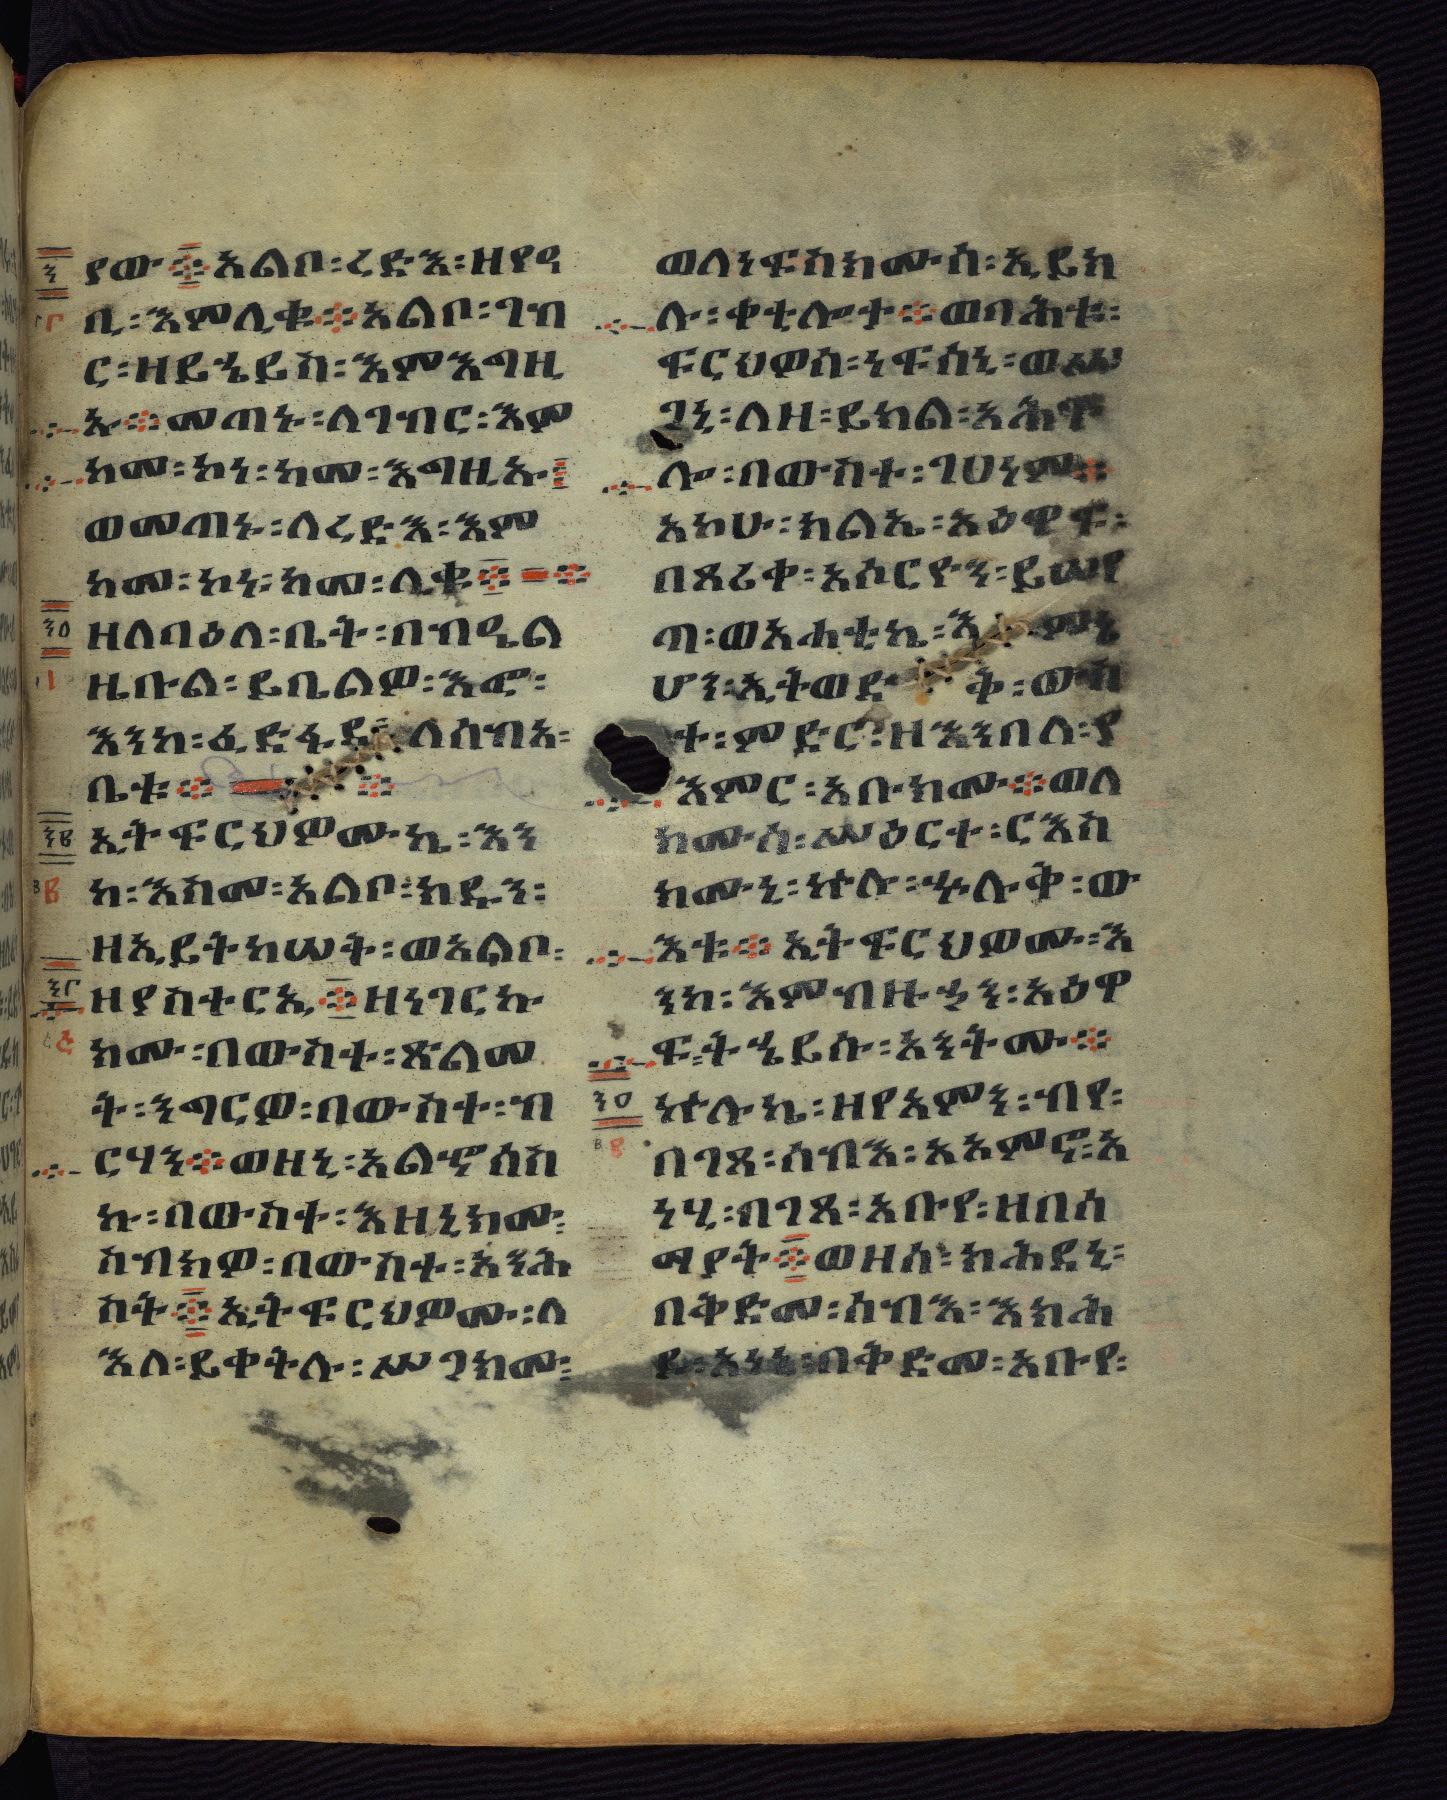 ያው። አልቦ፡ረድእ፡ዘየዓ
ቢ፡እምሊቁ።አልቦ፡ገብ
ር፡ዘይኄይስ፡እምእግዚ
ኡ።መጠኑ፡ለገብር፡እም
ከመ፡ኮነ፡ከመ፡እግዚኡ።
ወመጠኑ፡ለረድእ፡እም
ከመ፡ኮነ፡ከመ፡ሊቁ።
ዘለበዕለ፡ቤት፡በብዔል
ዜቡል፡ይቤልዎ፡እፎ፡
እንከ፡ፈድፋደ፡ለሰብአ፡
ቤቱ።
ኢትፍርህዎሙኬ፡እን
ከ፡እስመ፡አልቦ፡ክዱን፡
ዘኢይትከሠት፡ወአልቦ፡
ዘያስተርኢ።ዘነገርኩ
ክሙ፡በውስተ፡ጽልመ
ት፡ንግርዎ፡በውስተ፡ብ
ርሃን።ወዘኒ፡አልኆሰስ
ኩ፡በውስተ፡እዘኒክሙ፡
ስብክዎ፡በውስተ፡አንሕ
ስት።ኢትፍርህዎሙ፡ለ
እለ፡ይቀትሉ፡ሥጋክሙ፡
ወለነፍስክሙሰ፡ኢይክ
ሉ፡ቀቲሎተ።ወባሕቱ፡
ፍርህዎሰ፡ነፍሰኒ፡ወሥ
ጋኒ፡ለዘ፡ይክል፡አሕጕ
ሎ፡በውስተ፡ገሀነም።
አኮሁ፡ክልኤ፡አዕዋፍ፡
በጸሪቀ፡አሶርዮን፡ይሠየ
ጣ፡ወአሐቲኬ፡እምኔ
ሆን፡ኢትወድቅ፡ውስ
ተ፡ምድር፡ዘእንበለ፡ያ
እምር፡አቡክሙ።ወለ
ክሙሰ፡ሥዕርተ፡ርእስ
ክሙኒ፡ኵሉ፡ኍሉቅ፡ው
እቱ።ኢትፍርህዎሙ፡እ
ንከ፡እምብዙኃን፡አዕዋ
ፍ፡ትኄይሱ፡አንትሙ።
ኵሉኬ፡ዘየአምን፡ብየ፡
በገጸ፡ሰብእ፡አአምኖ፡አ
ነሂ፡በገጸ፡አቡየ፡ዘበሰ
ማያት።ወዘሰ፡ክሕደኒ፡
በቅድመ፡ሰብእ፡እክሕ
ዶ፡አነኒ፡በቅድመ፡አቡየ፡